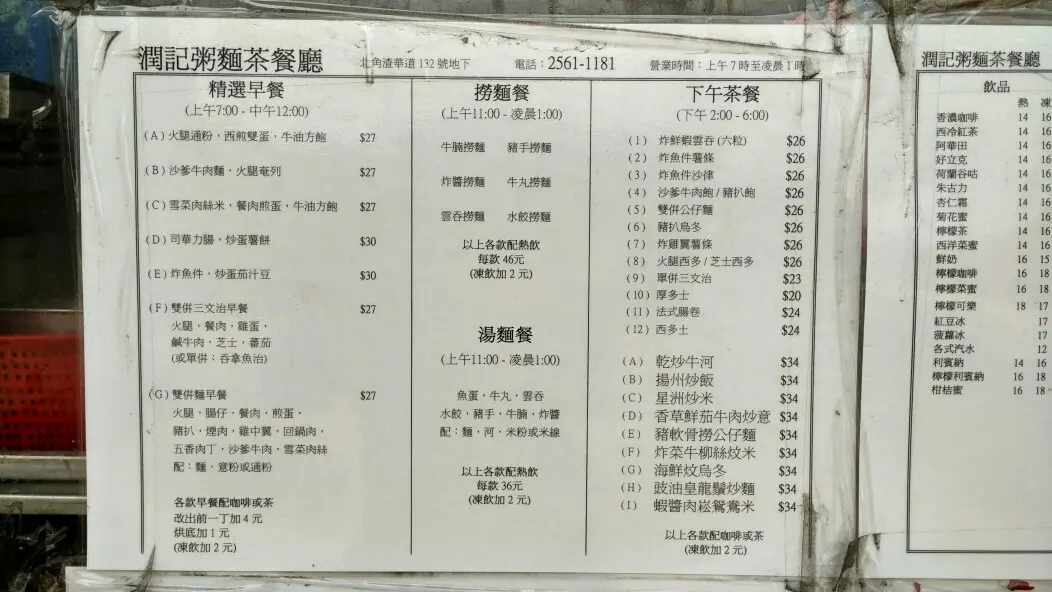 潤記粥麵茶餐廳 北角渣華道 132 號地下 電話：2561-1181 營業時間：上午 7 時至凌晨 1 時
精選早餐
(上午7:00 - 中午12:00)
(A) 火腿通粉，西煎雙蛋，牛油方飽 $27
(B) 沙爹牛肉麵，火腿奄列 $27
(C) 雪菜肉絲米，餐肉煎蛋，牛油方飽 $27
(D) 司華力腸，炒蛋薯餅 $30
(E) 炸魚件，炒蛋茄汁豆 $30
(F) 雙併三文治早餐 $27
火腿，餐肉，雞蛋，
鹹牛肉，芝士，蕃茄
(或單併：吞拿魚治)
(G) 雙併麵早餐 $27
火腿，腸仔，餐肉，煎蛋，
豬扒，煙肉，雞中翼，回鍋肉，
五香肉丁，沙爹牛肉，雪菜肉絲
配：麵，意粉或通粉
各款早餐配咖啡或茶
改出前一丁加 4 元
烘底加 1 元
(凍飲加 2 元)
撈麵餐
(上午11:00 - 凌晨1:00)
牛腩撈麵 豬手撈麵
炸醬撈麵 牛丸撈麵
雲吞撈麵 水餃撈麵
以上各款配熱飲
每款 46元
(凍飲加 2 元)
湯麵餐
(上午11:00 - 凌晨1:00)
魚蛋，牛丸，雲吞
水餃，豬手，牛腩，炸醬
配：麵，河，米粉或米線
以上各款配熱飲
每款 36元
(凍飲加 2 元)
下午茶餐
(下午 2:00 - 6:00)
(1) 炸鮮蝦雲吞 (六粒) $26
(2) 炸魚件薯條 $26
(3) 炸魚件沙律 $26
(4) 沙爹牛肉飽 / 豬扒飽 $26
(5) 雙併公仔麵 $26
(6) 豬扒烏冬 $26
(7) 炸雞翼薯條 $26
(8) 火腿西多 / 芝士西多 $26
(9) 單併三文治 $23
(10) 厚多士 $20
(11) 法式腸卷 $24
(12) 西多士 $24
(A) 乾炒牛河 $34
(B) 揚州炒飯 $34
(C) 星洲炒米 $34
(D) 香草鮮茄牛肉炒意 $34
(E) 豬軟骨撈公仔麵 $34
(F) 炸菜牛柳絲炆米 $34
(G) 海鮮炆烏冬 $34
(H) 豉油皇龍鬚炒麵 $34
(I) 蝦醬肉崧鴛鴦米 $34
以上各款配咖啡或茶
(凍飲加 2 元)
潤記粥麵茶餐廳
飲品
熱 凍
香濃咖啡 14 16
西冷紅茶 14 16
阿華田 14 16
好立克 14 16
荷蘭谷咕 14 16
朱古力 14 16
杏仁霜 14 16
菊花蜜 14 16
檸檬茶 14 16
西洋菜蜜 14 16
鮮奶 16 15
檸檬咖啡 16 18
檸檬菜蜜 16 18
檸檬可樂 18 17
紅豆冰 17
菠蘿冰 17
各式汽水 12
利賓納 14 16
檸檬利賓納 16 18
柑桔蜜 16 18